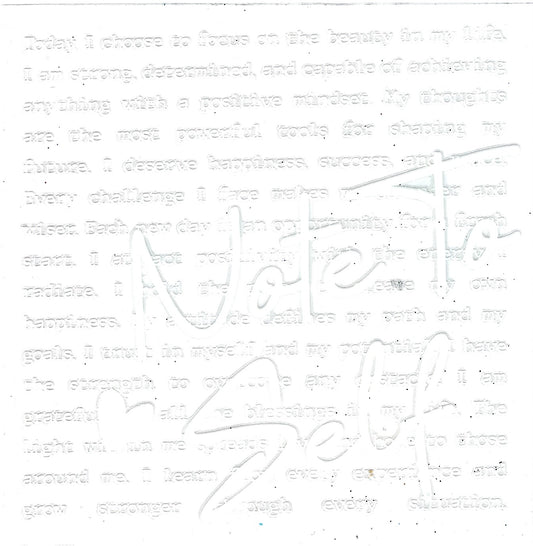 Today, I choose to focus on the beauty in my life.
I am strong, determined, and capable of achieving
anything with a positive mindset. My thoughts
are the most powerful tools for shaping my
future. I deserve happiness, success, and
Every challenge I face makes and
wiser. Each new day is an opportunity for a fresh
start. I attract positivity with the energy I
radiate. I hold the own
happiness. My attitude defines my path and my
goals. I trust in myself and my potential. I have
the strength to overcome any obstacle. I am
grateful all the blessings in my life. The
light within me spreads to those
around me. I learn from every experience and
grow stronger through every situation.
Note To
Self